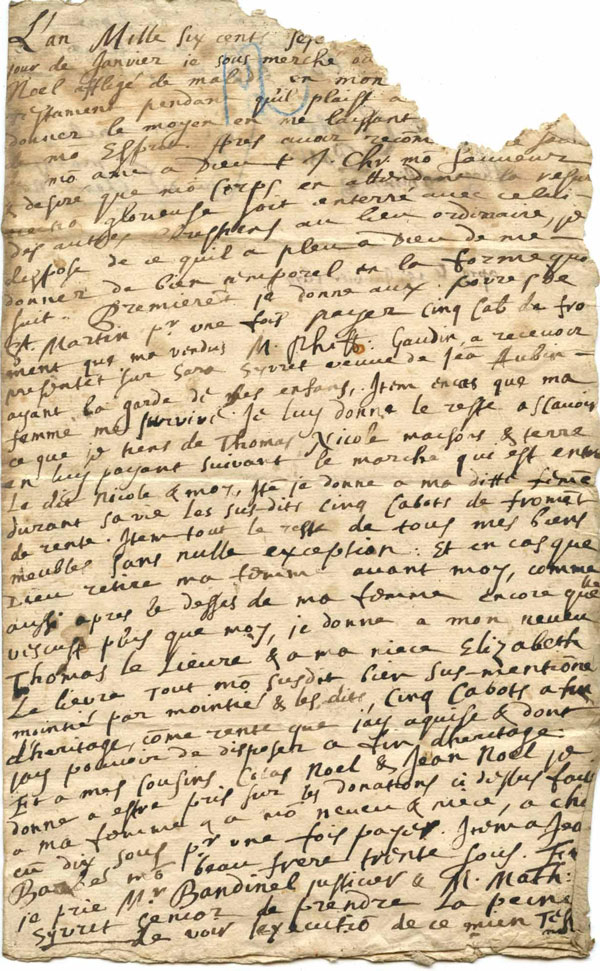 L'an Mille six cents sexe
jour de Janvier je sous merche
Noel affligé de maladie en mon
Testament pendant qu'il plaist a
donner le moyen en me laissant
mo Esprit. Apres avoir recom
mo ame a Dieu & J. Chr. mo Sauveur
& desire que mo corps en attendant la resur
glorieuse soit enterré avec celui
des autres au lieu ordinaire, je
dispose de ce quil a pleu a Dieu de me
donner de bien temporel en la forme qui
suit. Premieret je donne aux povres de
St. Martin pr une fois payer cinq Cab de fro
ment que ma vendus M. Gaudin, a recevoir
presentet sur Sara Syvret veuve de Jea Aubin
ayant la garde de ses enfans, Item encas que ma
femme me survive Je luy donne le reste ascavoir
ce que je tiens de Thomas Nicole maisons & terre
en luy payant suivant le marché qui est entre
Le dit Nicole & moy, Ite je donne a ma ditte féme
durant sa vie les susdits cinq Cabots de fromet
de rente. Item tout le reste de tous mes biens
meubles sans nulle exception: Et en cas que
Dieu retire ma femme avant moy, comme
aussi apres le desses de ma femme encore quelle
vescust plus que moy, je donne a mon neveu
Thomas le Lievre & a ma niece Elizabeth
Le lievre tout mo susdit bien sus-mentioné
mointié par mointié & les dits cinq Cabots a fin
d'heritage, come rente que jays aquise & dont
jays pouvoir de disposer a fin dheritage.
Et a mes cousins Noel & Jean Noel je
donne a estre pris sur les donations ci dessus faites
a ma femme & a mo neveu & niece, a cha
cun dix sous pr une fois payer. Item a Jea
mo beau frere trente sous.
je prie Mr Bandinel justicier & M. Math:
Syvret senior de prendre la peine
de voir l'executio de ce mien